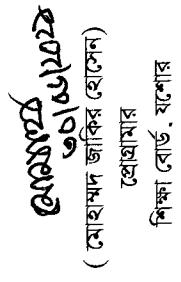 ৩০/০৬/২০২৫
( মোহাম্মদ জাকির হোসেন)
প্রোগ্রামার
শিক্ষা বোর্ড, যশোর